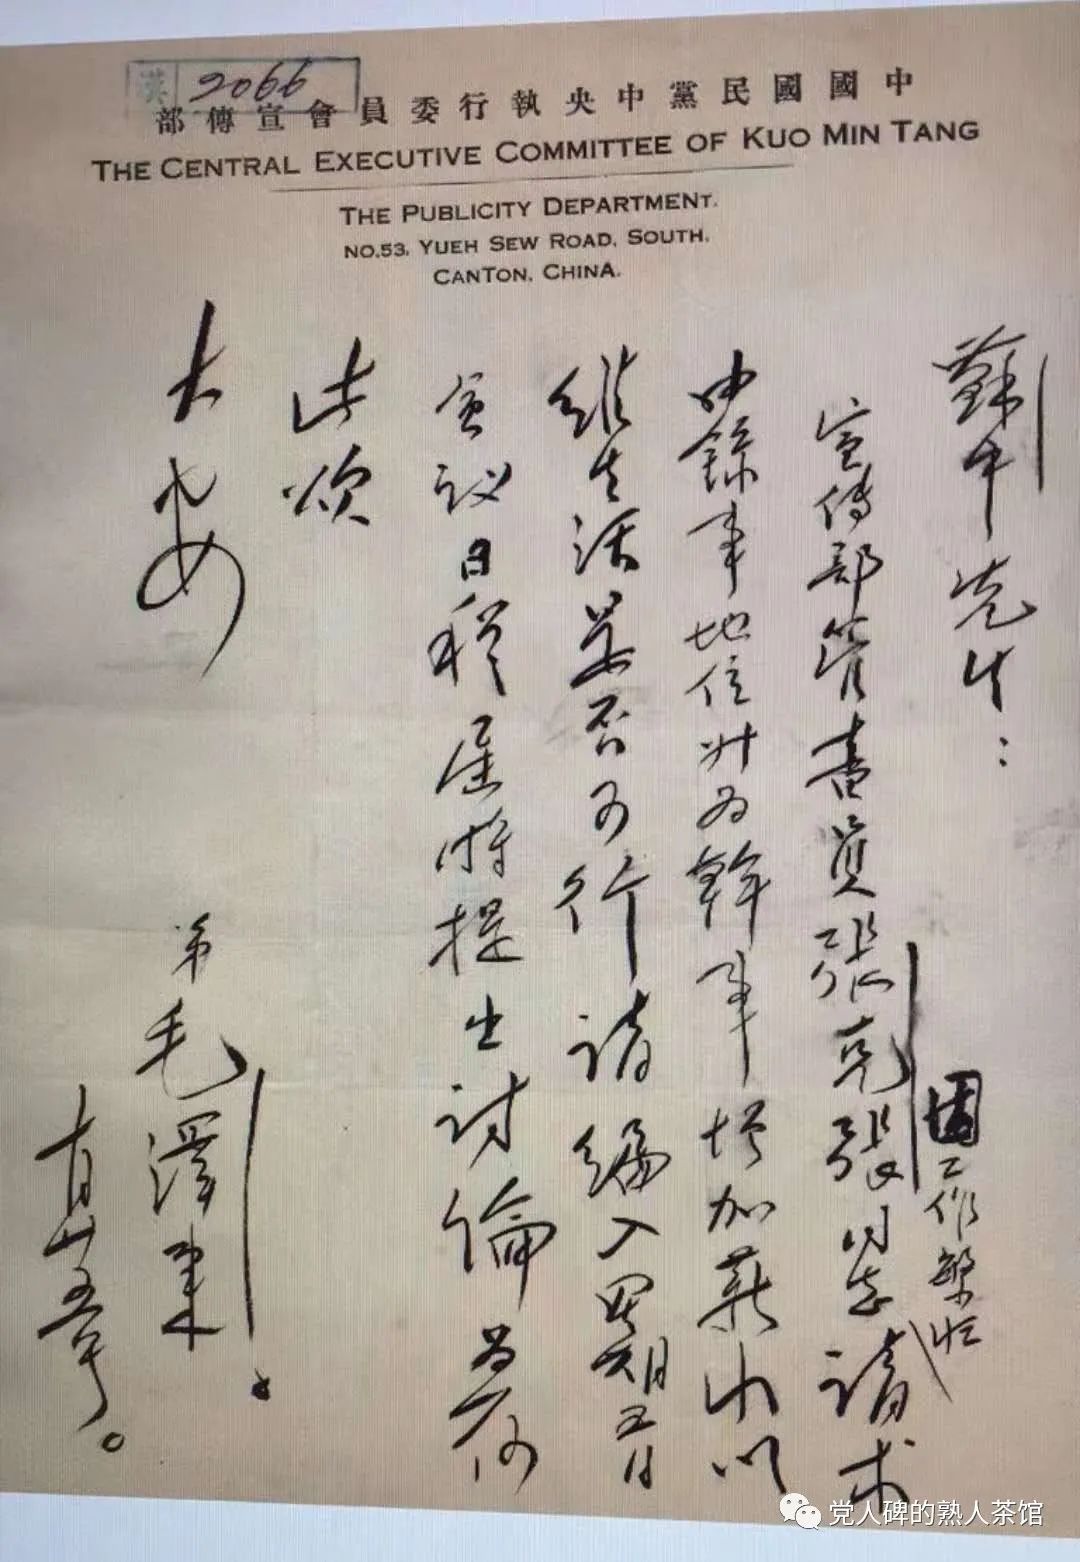 漢 2066
中國國民黨中央執行委員會宣傳部
THE CENTRAL EXECUTIVE COMMITTEE OF KUO MIN TANG
THE PUBLICITY DEPARTMENT.
NO.53, YUEH SEW ROAD, SOUTH,
CANTON, CHINA.
先生：
宣传部管書員張克張同志請求
因工作繁忙
由錄事地位升为幹事增加薪水以
維生活是否可行請編入星期五日
会议日程屆時提出讨論为荷
此颂
大安
弟毛澤東。
党人碑的熟人茶馆